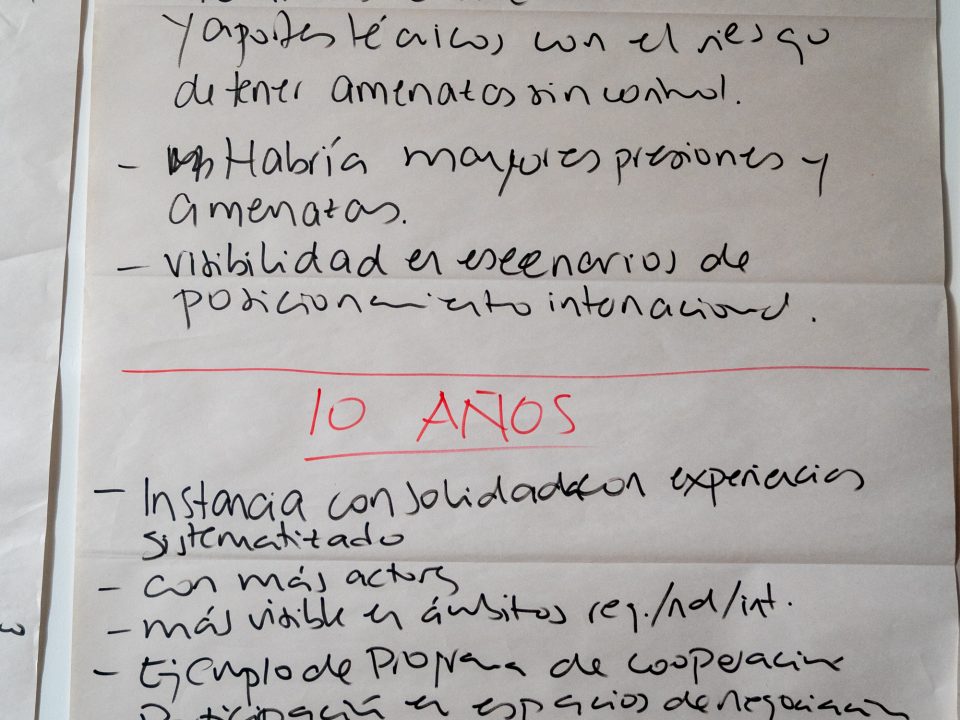 y aportes técnicos con el riesgo
de tener amenazas sin control.
- Habría mayores presiones y
amenazas.
- visibilidad en esceenarios de
posicionamiento internacional.
10 AÑOS
- Instancia consolidada con experiencias
sistematizado
- con más actores
- más visible en ámbitos reg./nal/int.
- Ejemplo de Programa de cooperación
Participación en espacios de negociación